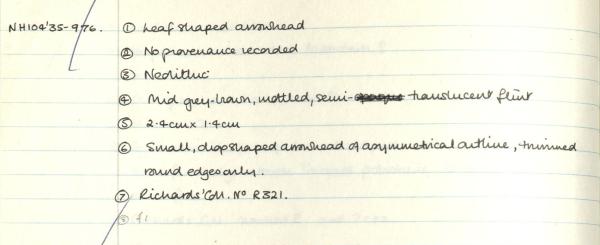 NH104'35-976. ① Leaf shaped arrowhead
② No provenance recorded
③ Neolithic
④ Mid grey-brown, mottled, semi- translucent flint
⑤ 2.4cm x 1.4cm
⑥ Small, drop shaped arrowhead of asymmetrical outline, trimmed
round edges only.
⑦ Richards' Coll. No R321.